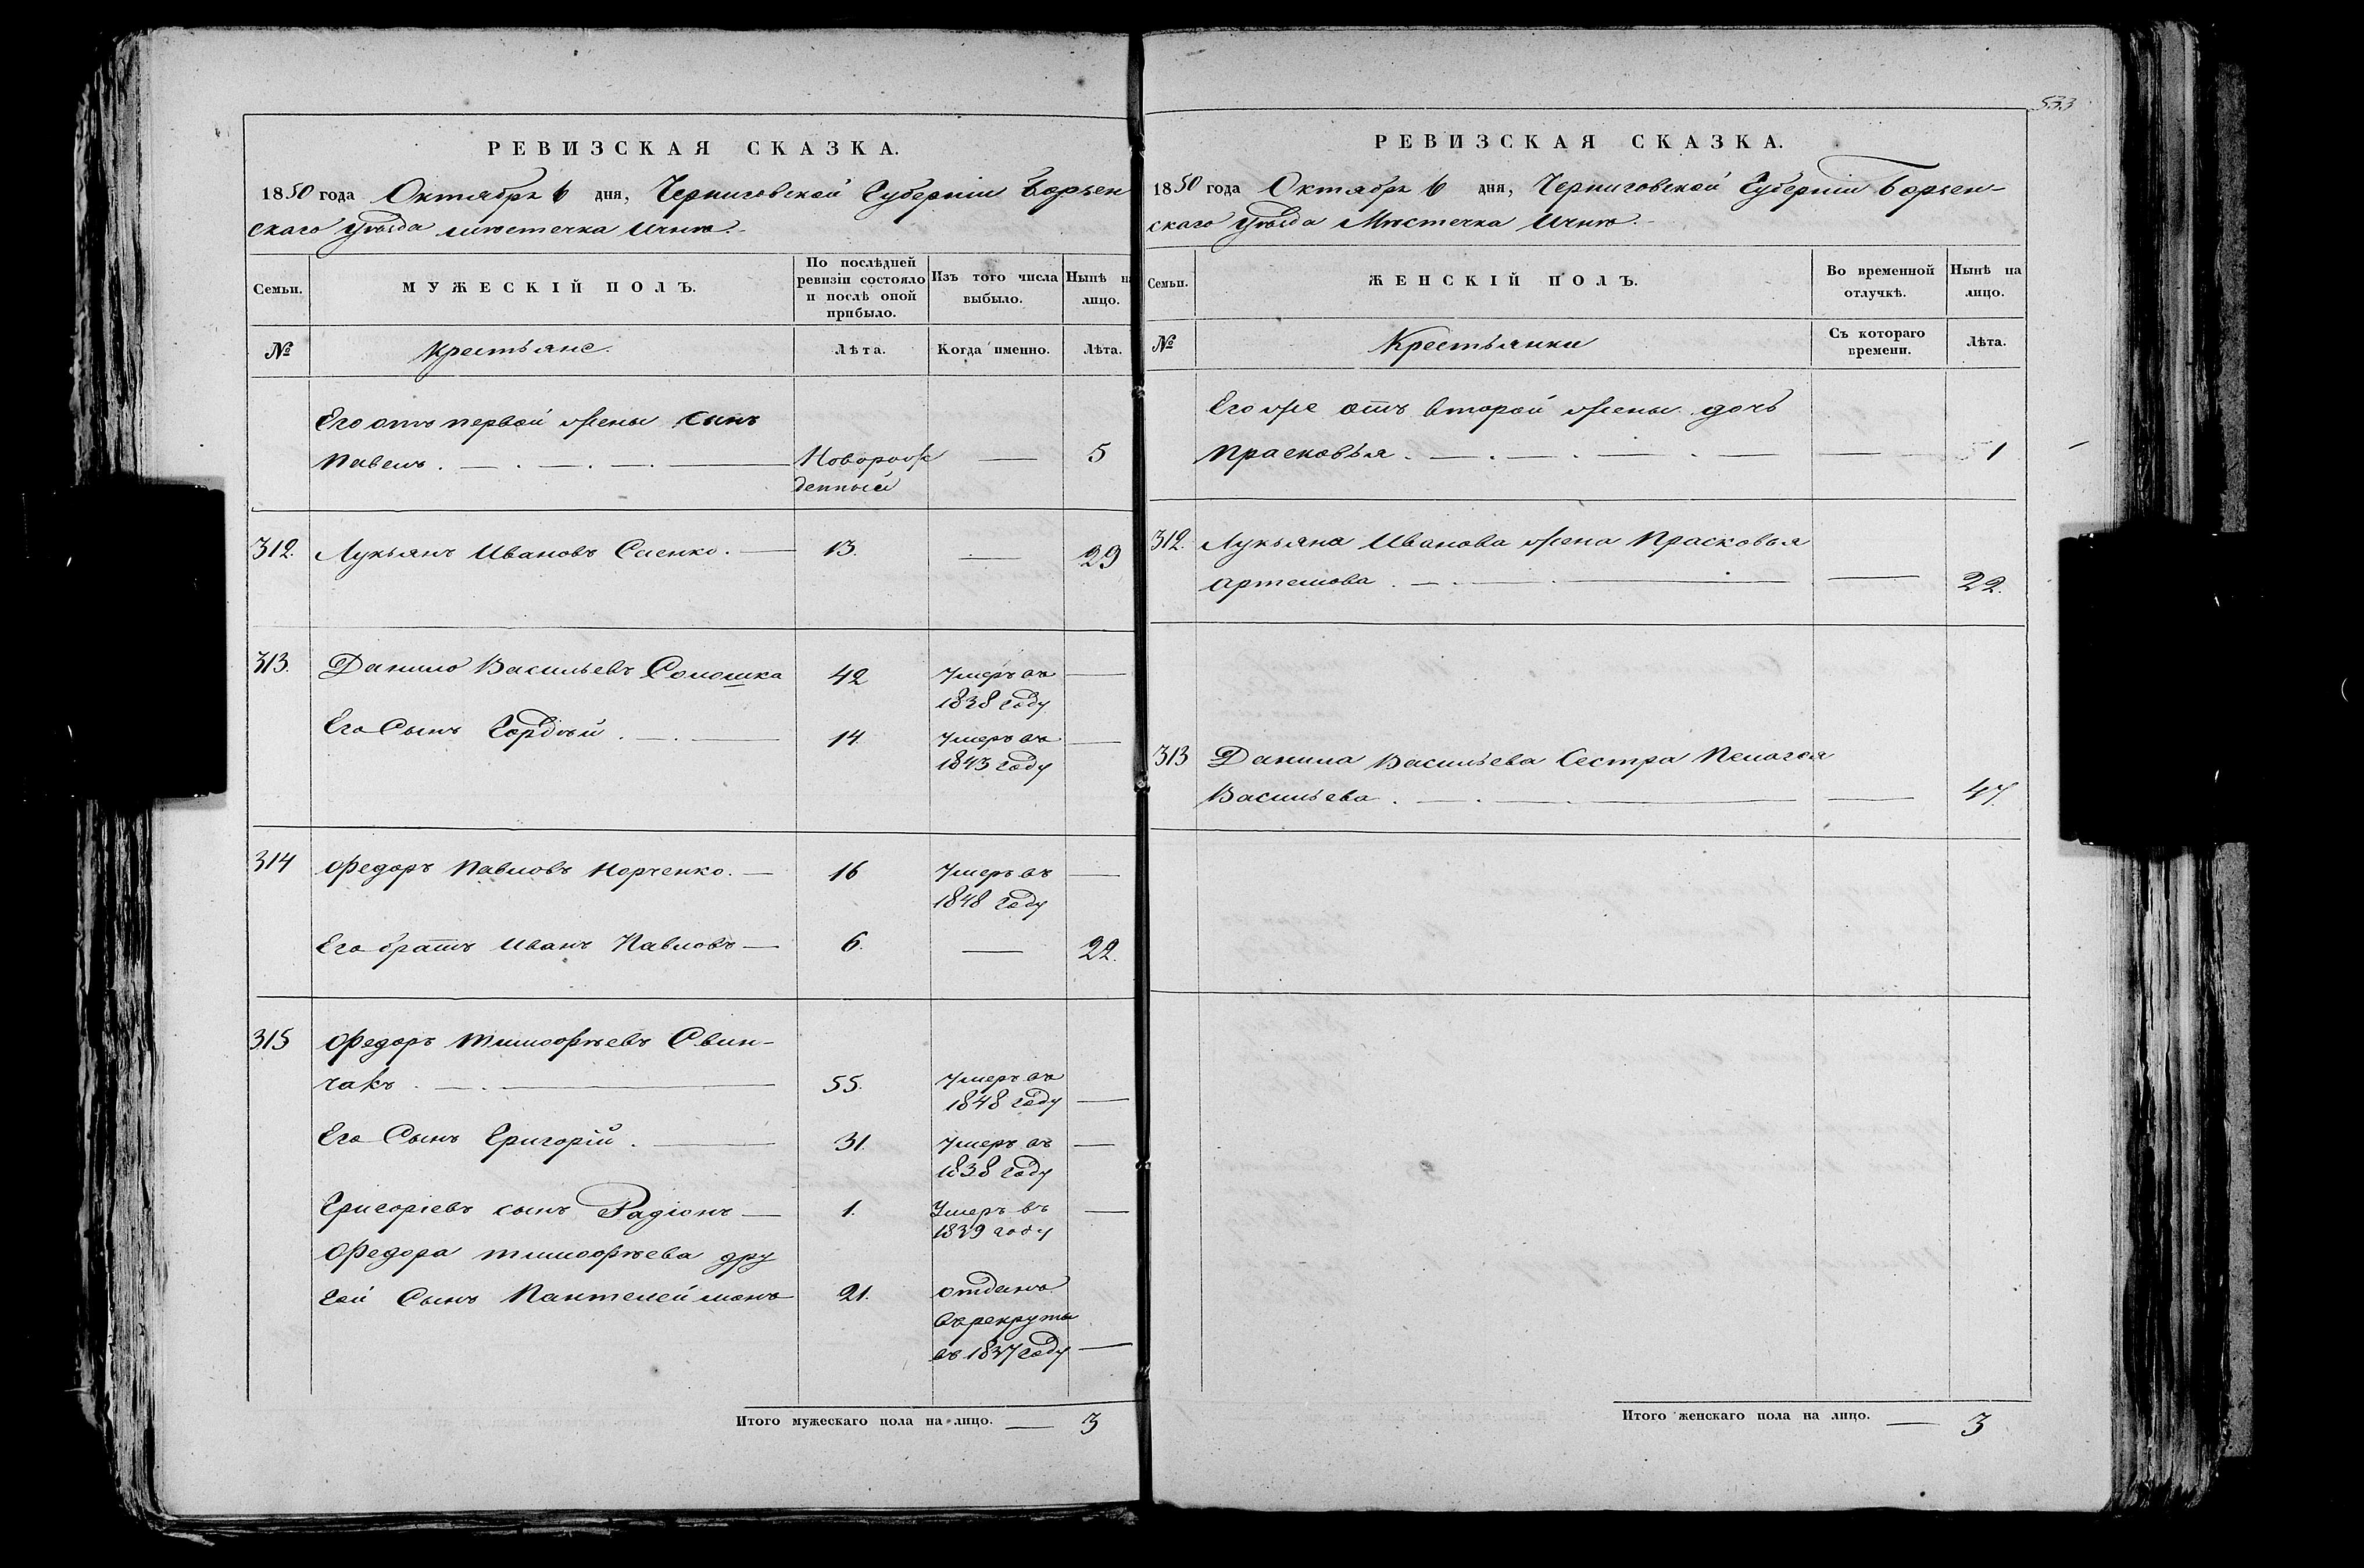 533
РЕВИЗСКАЯ СКАЗКА.
1850 года Октября 6 дня, Черниговской Губерніи Борзен
скаго Уѣзда мѣстечка Ичнѣ.
Семьи.
МУЖЕСКІЙ ПОЛЪ.
По послѣдней ревизіи состояло и послѣ оной прибыло.
Изъ того числа выбыло.
Нынѣ на лицо.
№ Крестьяне. Лѣта. Когда именно. Лѣта.
Его отъ первой жены сынъ
Павелъ. Новорож 5
денный
312. Лукьянъ Ивановъ Саенко. 13. 29
313. Данило Васильевъ Соломка 42 Умеръ въ
1838 году
Его Сынъ Гордѣй. 14 Умеръ въ
1843 году
314 Федоръ Павловъ 16 Умеръ въ
1848 году
Его братъ Иванъ Павловъ 6. 22.
315 Федоръ Тимофѣевъ Свин-
чакъ. 55. Умеръ въ
1848 году
Его Сынъ Григорій. 31. Умеръ въ
1838 году
Григоріевъ сынъ Радіонъ 1. Умеръ въ
1839 году
Федора Тимофѣева дру
гой Сынъ Пантелеймонъ 21. отданъ
въ рекруты
въ 1837 году
Итого мужескаго пола на лицо. 3
РЕВИЗСКАЯ СКАЗКА.
1850 года Октября 6 дня, Черниговской Губерніи Борзен-
скаго Уѣзда Мѣстечка Ичнѣ.
Семьи.
ЖЕНСКІЙ ПОЛЪ.
Во временной отлучкѣ.
Нынѣ на лицо.
№ Крестьянки Съ котораго времени. Лѣта.
Его же отъ второй жены дочь
Прасковья. 1
312. Лукьяна Иванова жена Прасковья
Артемова. 22.
313 Данила Васильева Сестра Пелагея
Васильева. 47.
Итого женскаго пола на лицо. 3